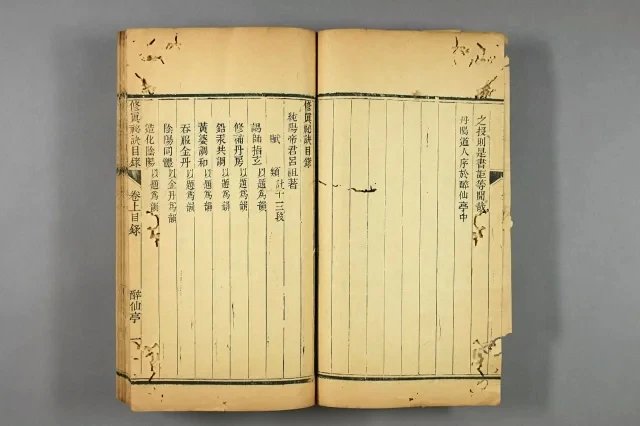 之授則是書詎等閒哉
丹陽道人序於醉仙亭中
修眞祕訣目錄
純陽帝君呂祖著
賦類 計十三段
謁師指玄 以題爲韻
修補丹房 以題爲韻
鉛汞共調 以題爲韻
黃婆調和 以題爲韻
吞服金丹 以題爲韻
陰陽同體 以金丹爲韻
造化陰陽 以題爲韻
修眞祕訣目錄 卷上目錄 醉仙亭